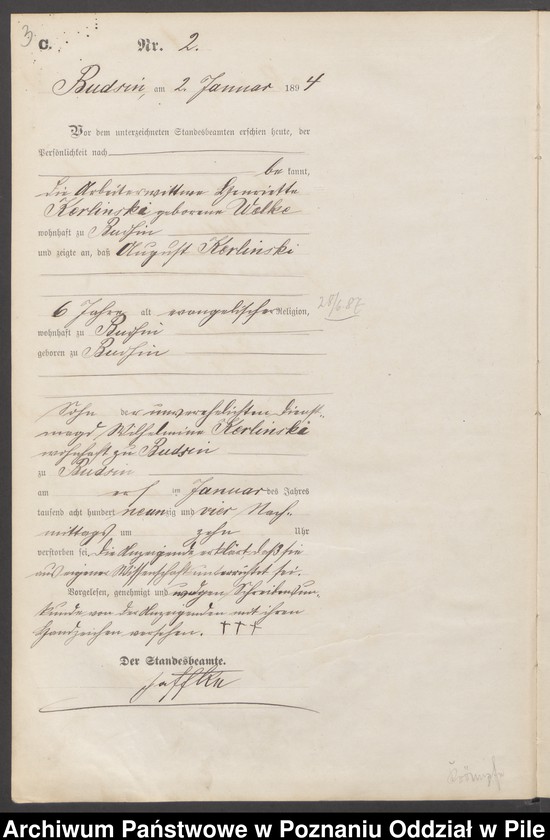 3
C. Nr. 2.
Budsin, am 2 Januar 1894
Vor dem unterzeichneten Standesbeamten erschien heute, der
Persönlichkeit nach
be kannt,
die Arbeiterwittwe Henriette
Kerlinski geborene Welke
wohnhaft zu Budsin
und zeigte an, daß August Kerlinski
6 Jahre alt evangelischer Religion,
28/6.87
wohnhaft zu Budsin
geboren zu Budsin
Sohn der unverehelichten Dienst-
magd Wilhelmine Kerlinski
wohnhaft zu Budsin
zu Budsin
am ten Januar des Jahres
tausend acht hundert neunzig und vier Nach-
mittags um zehn Uhr
verstorben sei, die Anzeigende erklärt daß sie
aus eigener Wissenschaft unterrichtet sei.
Vorgelesen, genehmigt und wegen Schreibensun-
kunde von der Anzeigenden mit ihren
Handzeichen versehen. †††
Der Standesbeamte.
Krämpfe
Archiwum Państwowe w Poznaniu Oddział w Pile